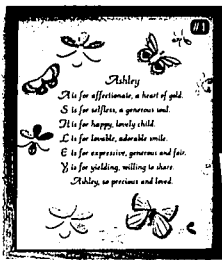 #1
Ashley
A is for affectionate, a heart of gold.
S is for selfless, a generous soul.
H is for happy, lovely child.
L is for lovable, adorable smile.
E is for expressive, generous and fair.
Y is for yielding, willing to share.
Ashley, so precious and loved.